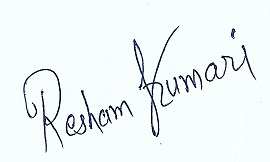 Resham Kumari